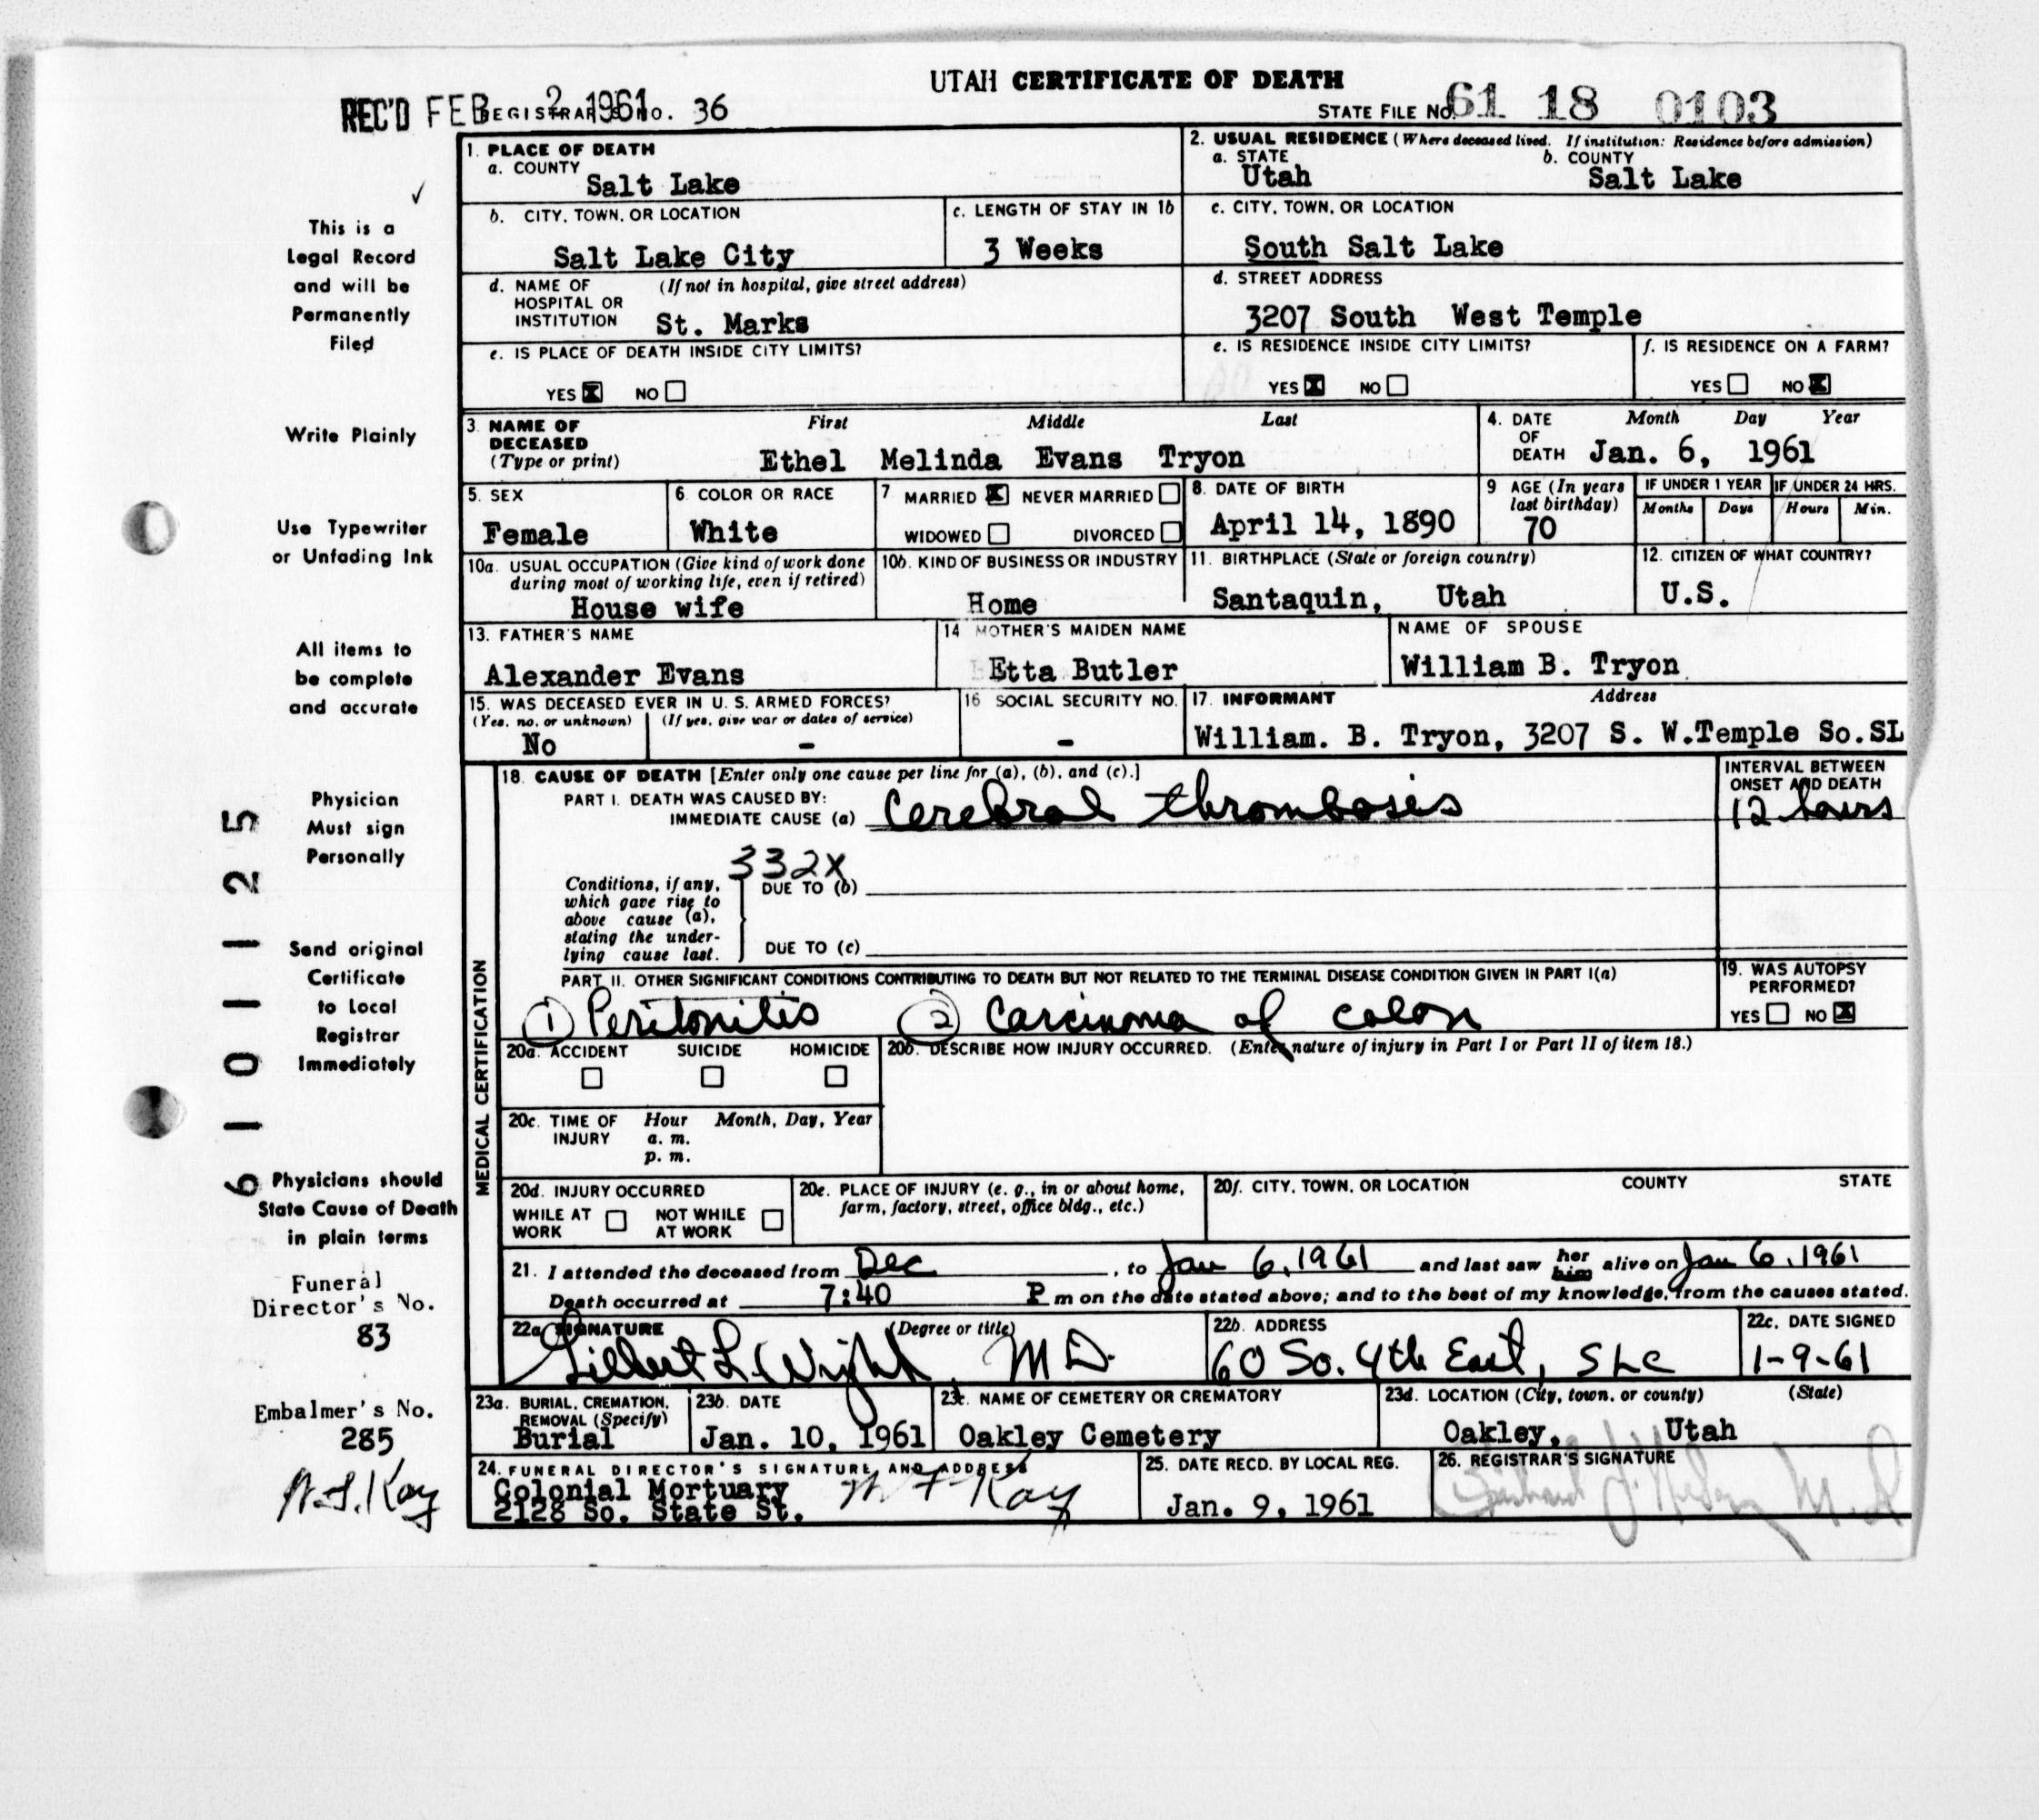 UTAH CERTIFICATE OF DEATH
REC'D FEB 2 1961 REGISTRAR'S NO. 36
STATE FILE NO. 61 18 0103
This is a
Legal Record
and will be
Permanently
Filed
Write Plainly
Use Typewriter
or Unfading Ink
All items to
be complete
and accurate
Physician
Must sign
Personally
Send original
Certificate
to Local
Registrar
Immediately
Physicians should
State Cause of Death
in plain terms
Funeral
Director's No.
83
Embalmer's No.
285
6101125
1. PLACE OF DEATH
a. COUNTY
Salt Lake
2. USUAL RESIDENCE (Where deceased lived. If institution: Residence before admission)
a. STATE b. COUNTY
Utah Salt Lake
b. CITY, TOWN, OR LOCATION
Salt Lake City
c. LENGTH OF STAY IN 1b
3 Weeks
c. CITY, TOWN, OR LOCATION
South Salt Lake
d. NAME OF (If not in hospital, give street address)
HOSPITAL OR
INSTITUTION St. Marks
d. STREET ADDRESS
3207 South West Temple
e. IS PLACE OF DEATH INSIDE CITY LIMITS?
YES X NO
e. IS RESIDENCE INSIDE CITY LIMITS?
YES X NO
f. IS RESIDENCE ON A FARM?
YES NO X
3. NAME OF First Middle Last
DECEASED
(Type or print) Ethel Melinda Evans Tryon
4. DATE Month Day Year
OF
DEATH Jan. 6, 1961
5. SEX
Female
6. COLOR OR RACE
White
7 MARRIED X NEVER MARRIED
WIDOWED DIVORCED
8. DATE OF BIRTH
April 14, 1890
9 AGE (In years
last birthday)
70
IF UNDER 1 YEAR IF UNDER 24 HRS.
Months Days Hours Min.
10a. USUAL OCCUPATION (Give kind of work done
during most of working life, even if retired)
House wife
10b. KIND OF BUSINESS OR INDUSTRY
Home
11. BIRTHPLACE (State or foreign country)
Santaquin, Utah
12. CITIZEN OF WHAT COUNTRY?
U.S.
13. FATHER'S NAME
Alexander Evans
14 MOTHER'S MAIDEN NAME
Etta Butler
NAME OF SPOUSE
William B. Tryon
15. WAS DECEASED EVER IN U. S. ARMED FORCES?
(Yes, no, or unknown) (If yes, give war or dates of service)
No -
16 SOCIAL SECURITY NO.
-
17. INFORMANT Address
William. B. Tryon, 3207 S. W.Temple So.SL
MEDICAL CERTIFICATION
18. CAUSE OF DEATH [Enter only one cause per line for (a), (b), and (c).]
PART I. DEATH WAS CAUSED BY:
IMMEDIATE CAUSE (a) Cerebral thrombosis
INTERVAL BETWEEN
ONSET AND DEATH
12 hours
332X
Conditions, if any,
which gave rise to
above cause (a),
stating the under-
lying cause last.
DUE TO (b)
DUE TO (c)
PART II. OTHER SIGNIFICANT CONDITIONS CONTRIBUTING TO DEATH BUT NOT RELATED TO THE TERMINAL DISEASE CONDITION GIVEN IN PART I(a)
1 Peritonitis 2 Carcinoma of colon
19. WAS AUTOPSY
PERFORMED?
YES NO X
20a. ACCIDENT SUICIDE HOMICIDE
20b. DESCRIBE HOW INJURY OCCURRED. (Enter nature of injury in Part I or Part II of item 18.)
20c. TIME OF Hour Month, Day, Year
INJURY a. m.
p. m.
20d. INJURY OCCURRED
WHILE AT NOT WHILE
WORK AT WORK
20e. PLACE OF INJURY (e. g., in or about home,
farm, factory, street, office bldg., etc.)
20f. CITY, TOWN, OR LOCATION COUNTY STATE
21. I attended the deceased from Dec , to Jan 6, 1961 and last saw her him alive on Jan 6, 1961
Death occurred at 7:40 P m on the date stated above; and to the best of my knowledge, from the causes stated.
22a. SIGNATURE (Degree or title)
Gilbert L. Wright MD.
22b. ADDRESS
60 So. 4th East, SLC
22c. DATE SIGNED
1-9-61
23a. BURIAL, CREMATION,
REMOVAL (Specify)
Burial
23b. DATE
Jan. 10, 1961
23c. NAME OF CEMETERY OR CREMATORY
Oakley Cemetery
23d. LOCATION (City, town, or county) (State)
Oakley, Utah
24. FUNERAL DIRECTOR'S SIGNATURE AND ADDRESS
Colonial Mortuary Kay
2128 So. State St.
25. DATE RECD. BY LOCAL REG.
Jan. 9, 1961
26. REGISTRAR'S SIGNATURE
Kay